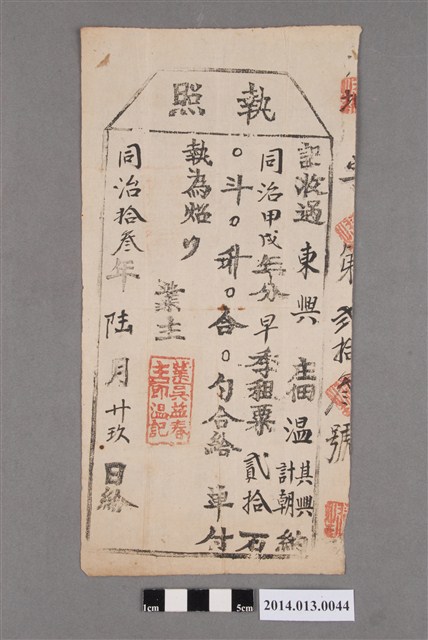 執照
記收過東興庄佃溫其興計朝納
同治甲戌年分早季租粟貳拾石
〇斗〇升〇合〇勺合給單付
執為炤
業主
業吳益春
主印溫記
同治拾叁年陸月廿玖日給
字第貳拾叁號
1cm 5cm
2014.013.0044